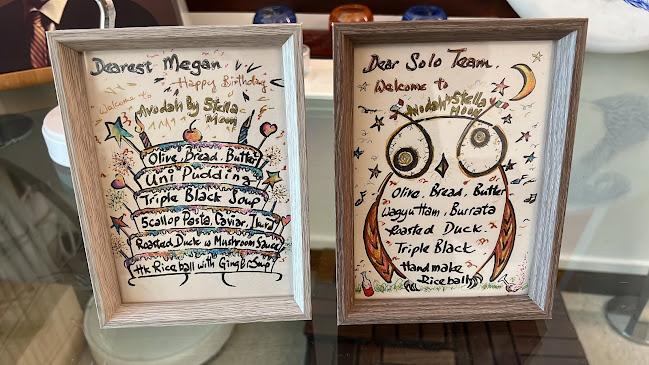 Dearest Megan
Happy Birthday
Welcome to
Anodah By Stella
Moon
Olive, Bread, Butter
Uni Pudding
Triple Black Soup
Scallop Pasta, Caviar,
Roasted Duck w Mushroom Sauce
HK Rice ball with Ginger Soup
Dear Solo Team,
Welcome to
Anodah by Stella
Moon
Olive, Bread, Butter
Wagyu Ham, Burrata
Roasted Duck.
Triple Black
Handmake
Rice ball